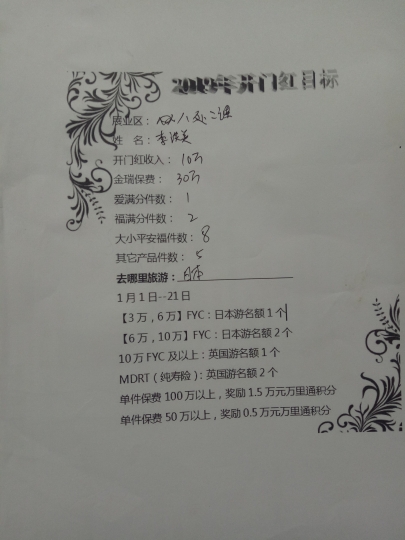 2019年开门红目标
展业区：
姓 名：李洪英
开门红收入：10万
金瑞保费：30万
爱满分件数：1
福满分件数：2
大小平安福件数：8
其它产品件数：5
去哪里旅游：日本
1月1日--21日
【3万，6万】FYC：日本游名额1个
【6万，10万】FYC：日本游名额2个
10万FYC及以上：英国游名额1个
MDRT（纯寿险）：英国游名额2个
单件保费100万以上，奖励1.5万元万里通积分
单件保费50万以上，奖励0.5万元万里通积分